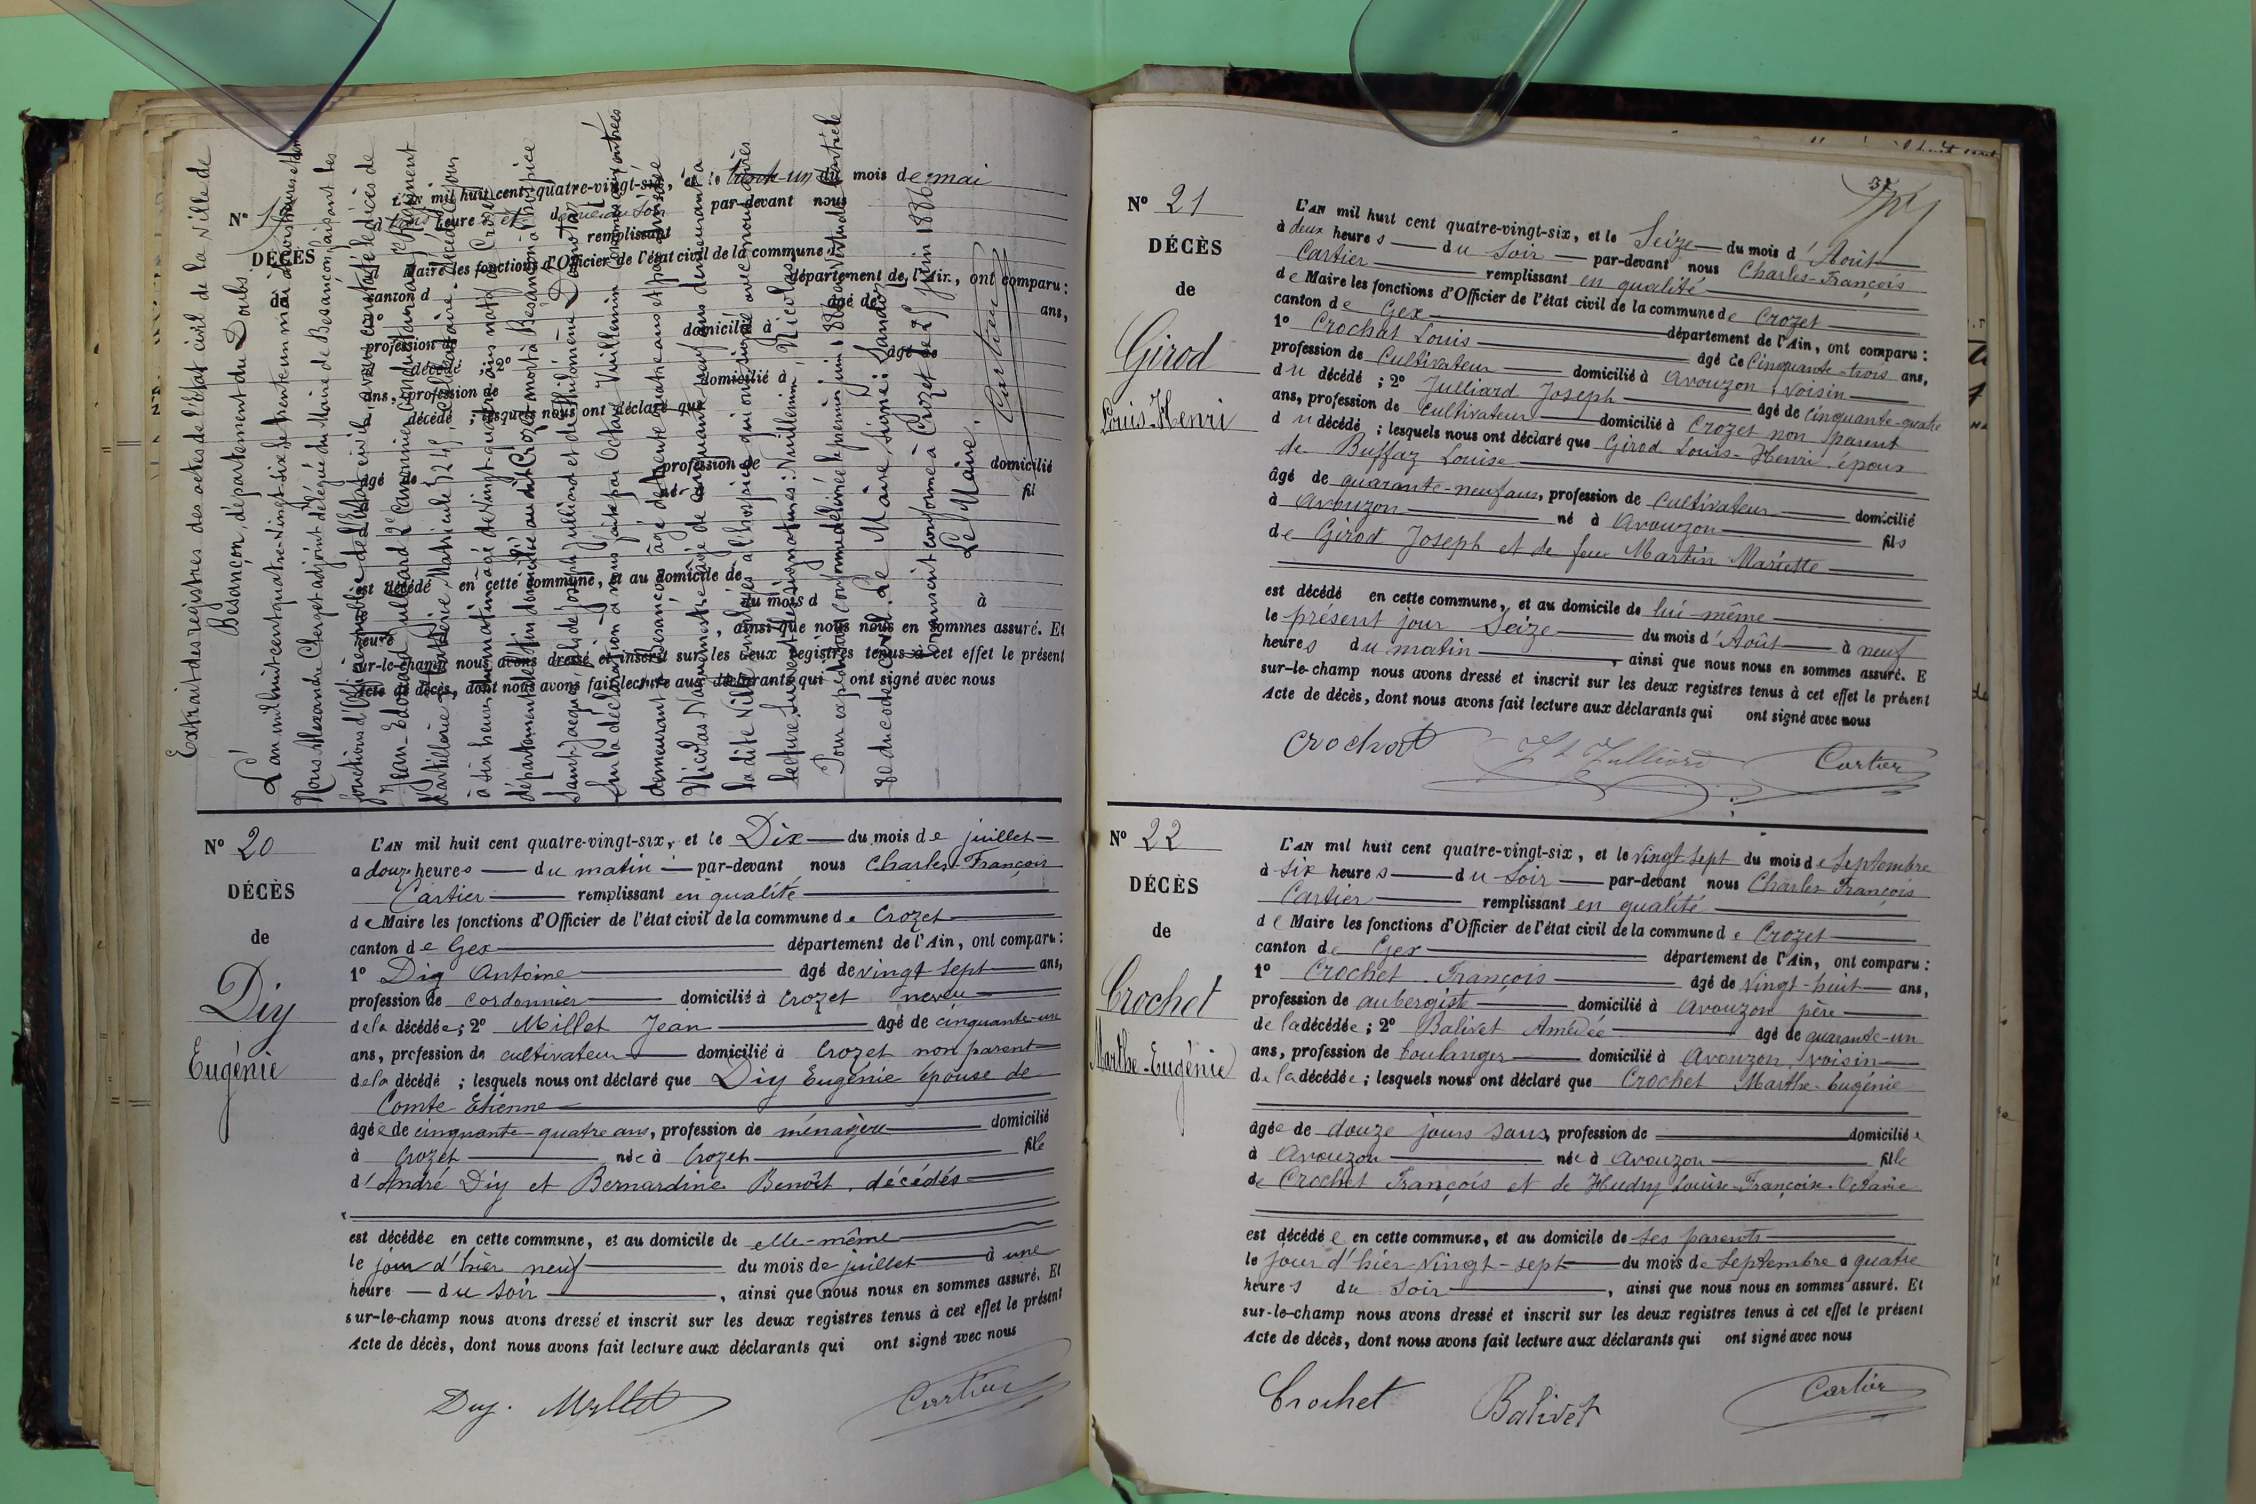 Extrait des registres des actes de l'Etat civil de la ville de
Besançon, département du Doubs.
L'an mil huit cent quatre-vingt-six, le trente un mai à trois heures et demie
Nous Alexandre Clerget adjoint délégué du Maire de Besançon, faisant les
fonctions d'Officier public de l'Etat civil, avons constaté le décès de
Jean-Edouard Julliard 2e Canonnier Conducteur au Régiment
d'artillerie Batterie Matricule 3245 Célibataire. Décédé
à six heures du matin âgé de vingt-quatre ans natif de Crozet
département de l'Ain domicilié au dit Crozet mort à Besançon à l'hospice
Saint-Jacques, fils de Joseph Julliard et de Philomène
Sur la déclaration à nous faite par Octave Vuillemin
demeurant à Besançon âgé de trente quatre ans et par
Nicolas âgé de cinquante neuf ans demeurant à
la dite Ville employés à l'hospice qui ont signé avec nous après
lecture. Suivent les signatures: Vuillemin, Nicolas
Pour expédition conforme délivrée le premier juin 1886 en vertu de l'article
80 du code civil. Le Maire signé: Sandoz
Transcrit conforme à Crozet le 25 juin 1886
Le Maire.
Cartier
N°
DÉCÈS
L'an mil huit cent quatre-vingt-six, et le trente-un du mois de mai
par-devant nous
remplissant
Maire les fonctions d'Officier de l'état civil de la commune
canton d
département de l'Ain, ont comparu :
âgé de ans,
profession de
domicilié à
décédé 2°
âgé de
ans, profession de
domicilié à
décédé ; lesquels nous ont déclaré que
âgé de
profession de domicilié
né fil
est décédé en cette commune, et au domicile de
du mois d à
heure , ainsi que nous nous en sommes assuré. Et
sur-le-champ nous avons dressé et inscrit sur les deux registres tenus à cet effet le présent
Acte de décès, dont nous avons fait lecture aux déclarants qui ont signé avec nous
N° 20
DÉCÈS
de
Diy
Eugénie
L'AN mil huit cent quatre-vingt-six, et le Dix du mois de juillet
a douze heures du matin par-devant nous Charles-François
Cartier remplissant en qualité
de Maire les fonctions d'Officier de l'état civil de la commune de Crozet
canton de Gex département de l'Ain, ont comparu :
1° Diy Antoine âgé de vingt-sept ans,
profession de cordonnier domicilié à Crozet neveu
de la décédée; 2° Millet Jean âgé de cinquante-un
ans, profession de cultivateur domicilié à Crozet non parent
de la décédé ; lesquels nous ont déclaré que Diy Eugénie épouse de
Comte Etienne
âgée de cinquante-quatre ans, profession de ménagère domicilié
à Crozet née à Crozet fille
d'André Diy et Bernardine Benoît, décédés
est décédée en cette commune, et au domicile de elle-même
le jour d'hier neuf du mois de juillet à une
heure du soir , ainsi que nous nous en sommes assuré. Et
sur-le-champ nous avons dressé et inscrit sur les deux registres tenus à cet effet le présent
Acte de décès, dont nous avons fait lecture aux déclarants qui ont signé avec nous
Diy. Millet Cartier
37
N° 21
DÉCÈS
de
Girod
Louis-Henri
L'AN mil huit cent quatre-vingt-six, et le Seize du mois d'Août
à deux heures du soir par-devant nous Charles-François
Cartier remplissant en qualité
de Maire les fonctions d'Officier de l'état civil de la commune de Crozet
canton de Gex département de l'Ain, ont comparu :
1° Crochat Louis âgé de Cinquante-trois ans,
profession de Cultivateur domicilié à Avouzon, voisin
du décédé ; 2° Julliard Joseph âgé de cinquante-quatre
ans, profession de cultivateur domicilié à Crozet non parent
du décédé ; lesquels nous ont déclaré que Girod Louis-Henri époux
de Buffaz Louise
âgé de quarante-neuf ans, profession de cultivateur domicilié
à Avouzon né à Avouzon fils
de Girod Joseph et de feue Martin Mariette
est décédé en cette commune, et au domicile de lui-même
le présent jour Seize du mois d'Août à neuf
heures du matin , ainsi que nous nous en sommes assuré. E
sur-le-champ nous avons dressé et inscrit sur les deux registres tenus à cet effet le présent
Acte de décès, dont nous avons fait lecture aux déclarants qui ont signé avec nous
Crochat Jh Julliard Cartier
N° 22
DÉCÈS
de
Crochet
Marthe-Eugénie
L'AN mil huit cent quatre-vingt-six, et le vingt sept du mois de Septembre
à six heures du soir par-devant nous Charles François
Cartier remplissant en qualité
de Maire les fonctions d'Officier de l'état civil de la commune de Crozet
canton de Gex département de l'Ain, ont comparu :
1° Crochet François âgé de vingt-huit ans,
profession de aubergiste domicilié à Avouzon père
de la décédée ; 2° Balivet Amédée âgé de quarante-un
ans, profession de boulanger domicilié à Avouzon, voisin
de la décédée ; lesquels nous ont déclaré que Crochet Marthe-Eugénie
âgée de douze jours sans, profession de domiciliée
à Avouzon née à Avouzon fille
de Crochet François et de Hudry Louise-Françoise-Octavie
est décédée en cette commune, et au domicile de ses parents
le jour d'hier vingt-sept du mois de Septembre à quatre
heures du soir , ainsi que nous nous en sommes assuré. Et
sur-le-champ nous avons dressé et inscrit sur les deux registres tenus à cet effet le présent
Acte de décès, dont nous avons fait lecture aux déclarants qui ont signé avec nous
Crochet Balivet Cartier